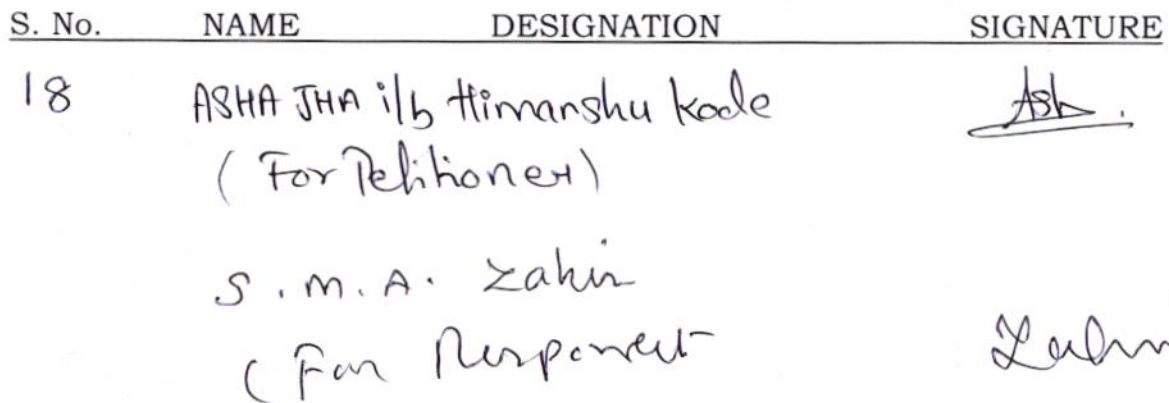 S. No. NAME DESIGNATION SIGNATURE
18 ASHA JHA i/b Himanshu Kode Ash.
(For Petitioner)
S.M.A. Zakir
(For Respondent